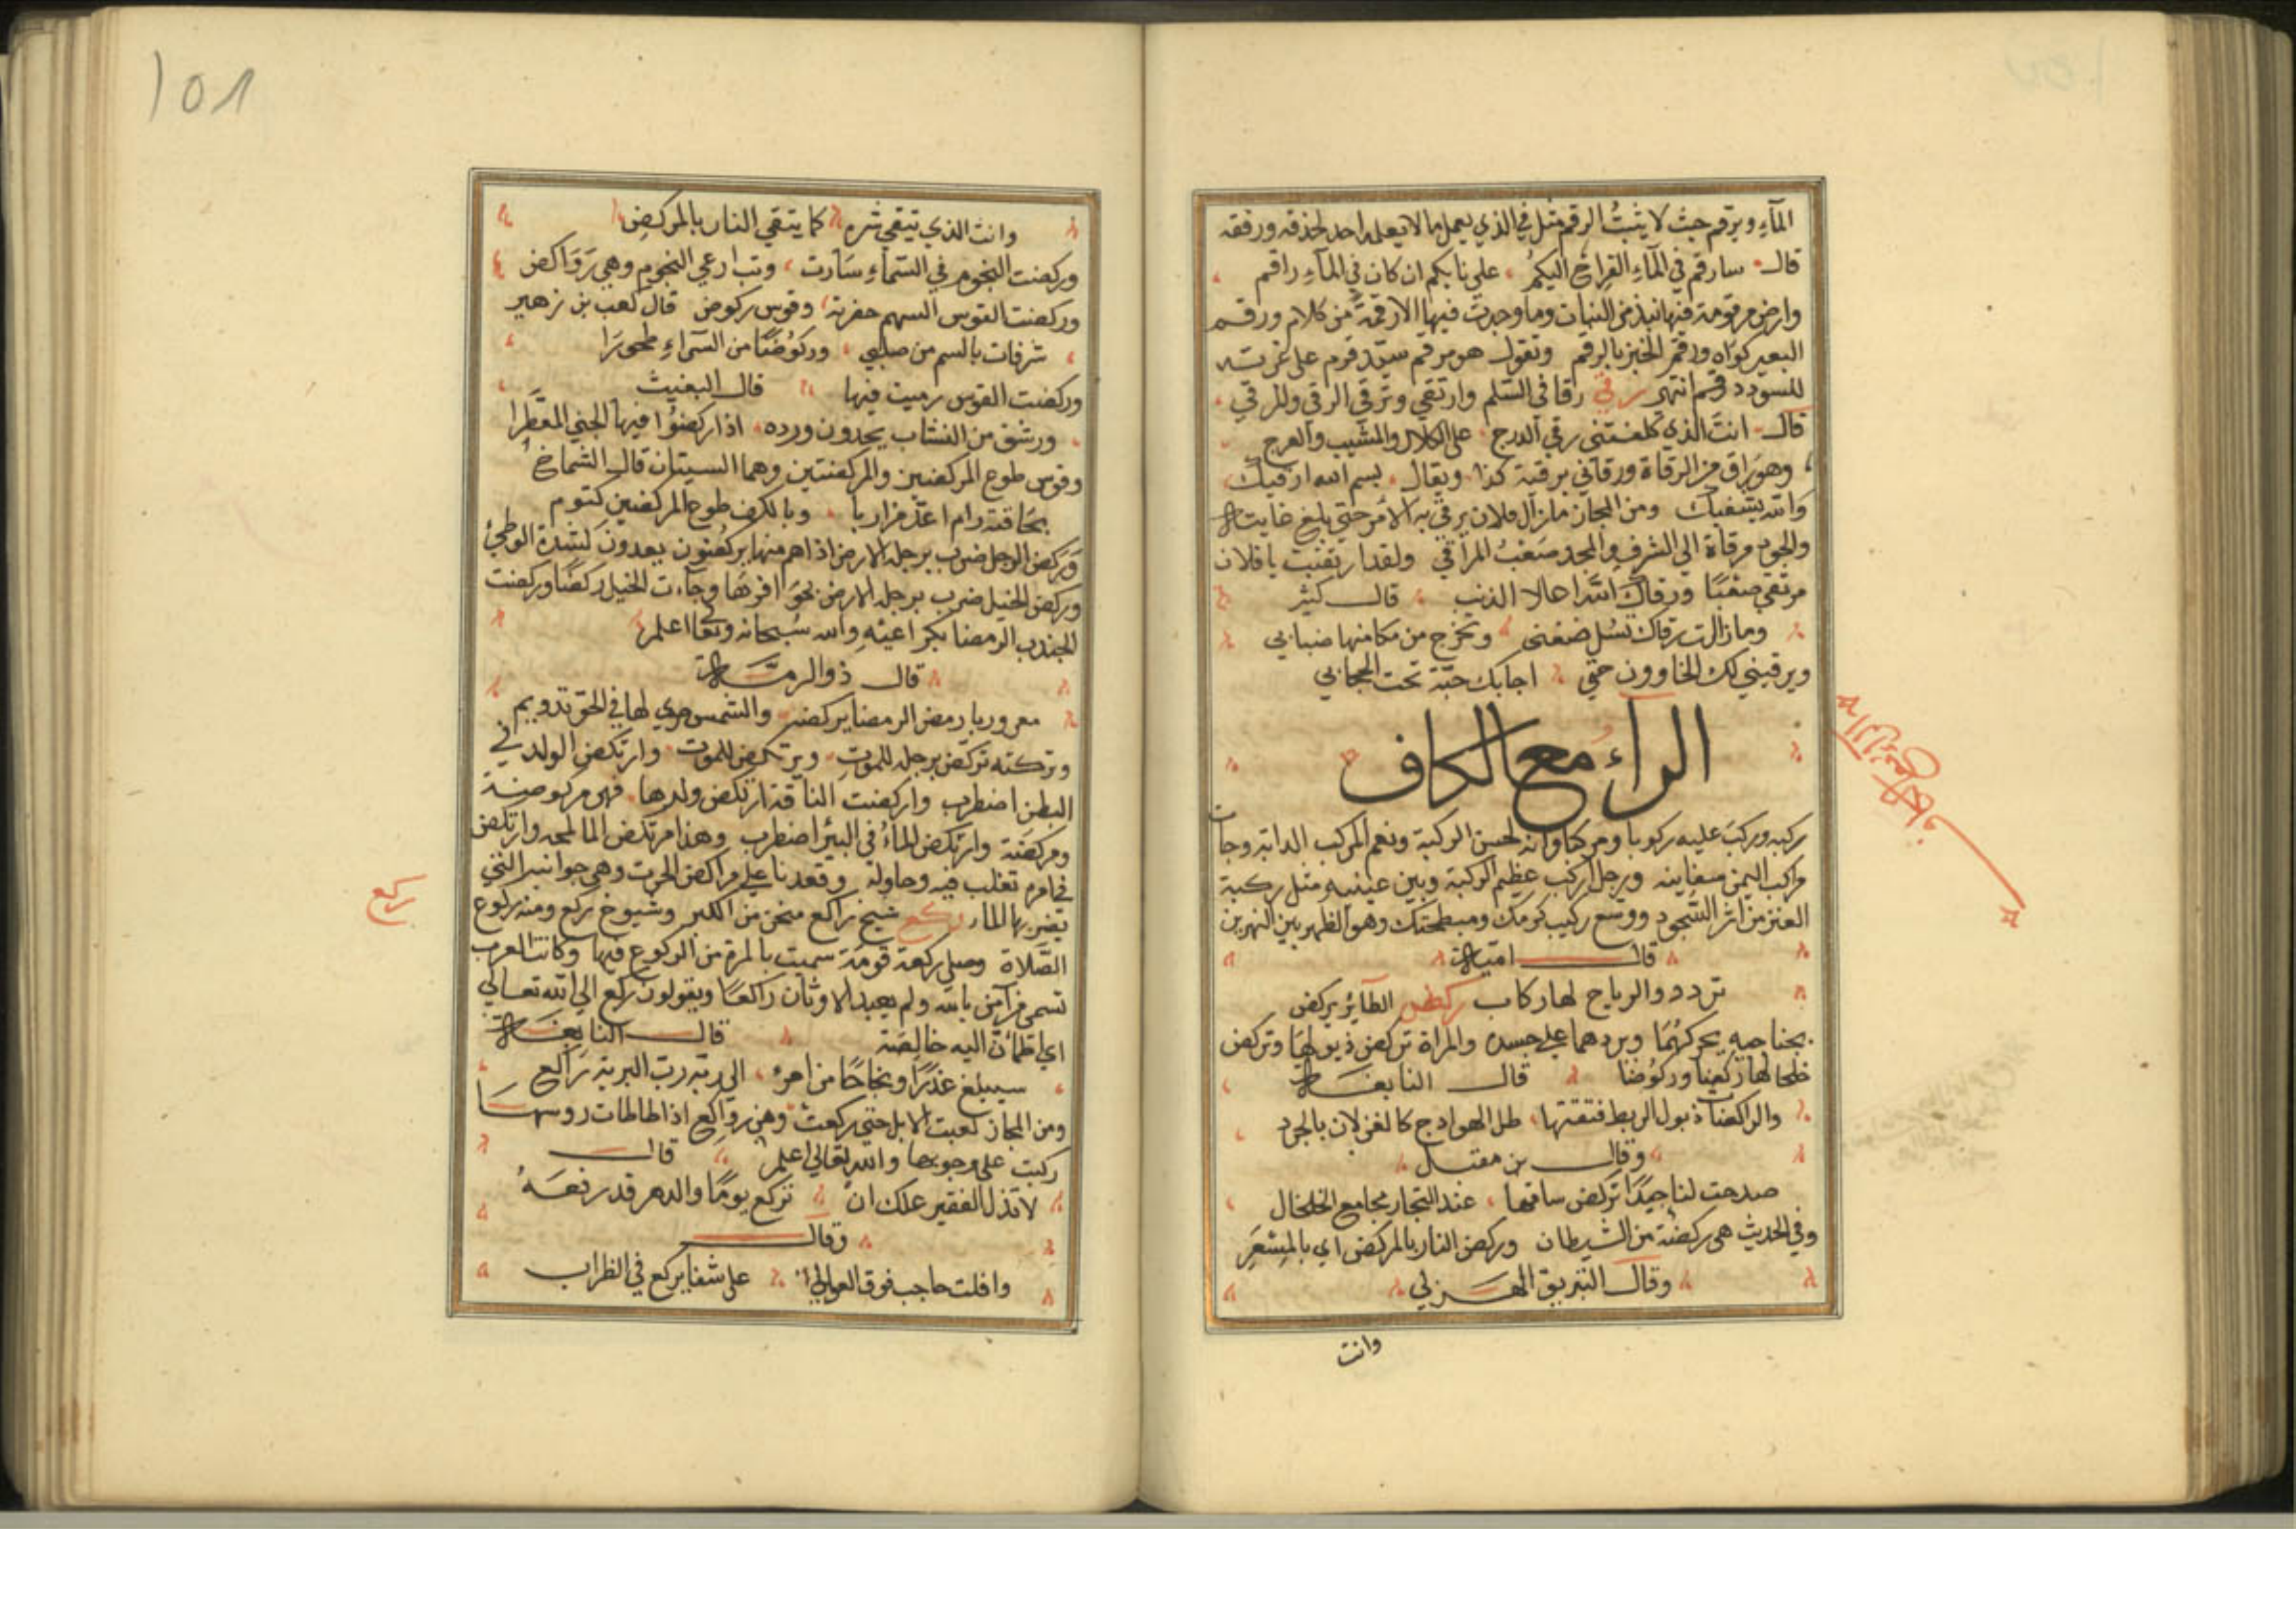 المآءِ ويرقم حيث لا يثبتُ الرقم مثل في الذي يعمل ما لا يعلمه احد لحذقه ورفقه
قال سارقم في المآءِ القراح اليكمُ علي نايكم ان كان في المآءِ راقم
وارض مرقومة فيها نبذ من النبات وما وجدت فيها الا رقمة من كلام ورقم
البعير كواه ورقم الخبز بالرقم وتقول هو مرقم سيد قوم على غرته
للسودد قسم انتهى رقي رقا في السلم وارتقي وترقي الرقي والمرقي
قال انت الذي كلفتني رقي الدرج على الكلال والمشيب والعرج
وهو راق من الرقاة ورقاني برقية كذا ويقال بسم الله ارقيك
والله يشفيك ومن المجاز ما زال فلان يرقي به الامر حتي بلغ غايته
والجود مرقاة الي الشرف والمجد صعبُ المراقي ولقد ارتقيت يا فلان
مرتقي صعبًا ورقاك الله اعالا الذتب قال كثير
وما زالت رقاك تسُل ضغني وتخرج من مكامنها ضبابي
ويرقيني لك الحاوون حتي اجابك حية تحت الحجابي
الرآء مع الكاف
باب الرآء مع الكاف
ركبه وركبَ عليه ركوبا ومركبا وانه لحسن الركبة ونعم المركب الدابة وجات
مراكب اليمن سفاينه ورجل اركب عظيم الركبة وبين عينيه مثل ركبة
العنز من اثر السجود ووسع ركيب كرمك ومبطحتك وهو الظهر بين النهرين
قال امية
تردد والرياح لها ركاب ركض الطآئر يركض
بجناحيه يحركهُمَا ويردهما علي جسده والمراة تركض ذيولها وتركض
خلخالها ركضا وركوُضا قال النابغة
والراكضات ذيول الريط فنقتها ظل الهوادج كالغزلان بالجرد
وقال بن مقبل
صدحت لنا جيدًا تركض ساقها عند التجار مجامع الخلخال
وفي الحديث هي ركضة من الشيطان وركض النار بالمركض اي بالمِسْعَرِ
وقال البريق الهزلي
وانت
101
وانت الذي يتقي شره كما يتقي النار بالمركضِ
وركضت النجوم في السَّمآءِ سَارت وبت ارعي النجوم وهي رَوَاكض
وركضت القوس السهم حفزته وقوس ركوض قال كعب بن زهير
شرقات بالسم من صلبي وركوُضًا من السَّرآءِ طحورَا
وركضت القوس رميت فيها قال البعيث
ورشق من النشاب يحدون ورده اذا اركضوُا فيها الجني المعَطَّرا
وقوس طوع المركضين والمركضتين وهما السيتان قال الشماخ
وبالكف طوع المركضين كتوم
وركض الرجل ضرب برجله الارض اذا هم منها يركضون يعدون لشدة الوطيءُ
وركض الخيل ضرب برجله الارض بحَوَافرهَا وجآءت الخيل ركضًا وركضت
الجندب الرمضا بكراعيْهِ والله سُبحانه وتعالى اعلم
قال ذو الرمة
معروريا رمض الرمضا يركضه والشمس حري لها في الجو تدويم
وتركته تركض برجله للموت ويرتكض للموت وارتكض الولد في
البطن اضطرب واركضت الناقة ارتكض ولدها فهي مركوضة
ومركضَة وارتكض المآءُ في البئر اضطرب وهذا مرتكض الما لمجمه وارتكض
في امره تقلب فيه وحاوله وقعدنا علي مراكض الحوت وهي جوانبه التي
يضربها الماء ركع شيخ راكع منحن من الكبر وشيوخ ركع ومنه ركوع
ركع
الصَّلاة وصلى ركعة قومَة سميت بالمرة من الركوع فيها وكانت العرب
تسمي من آمن بالله ولم يعبد الاوثان راكعًا ويقولون ركع الي الله تعالي
اي اطمأنّ اليه خالِصَة قال النابغة
سيبلغ عذرًا او نجاحًا من امرء الي ربه رب البرية رَاكع
ومن المجاز لغبت الابل حتي ركعتْ وهن رواكع اذا طاطات روسها
وكبت على وجوهها والله تعالي اعلم قال
لا تذل الفقير علك ان تركع يومًا والدهر قد رفعَهُ
وقال
وافلت حاجب فوق العوالي على شفا يركع في الظراب